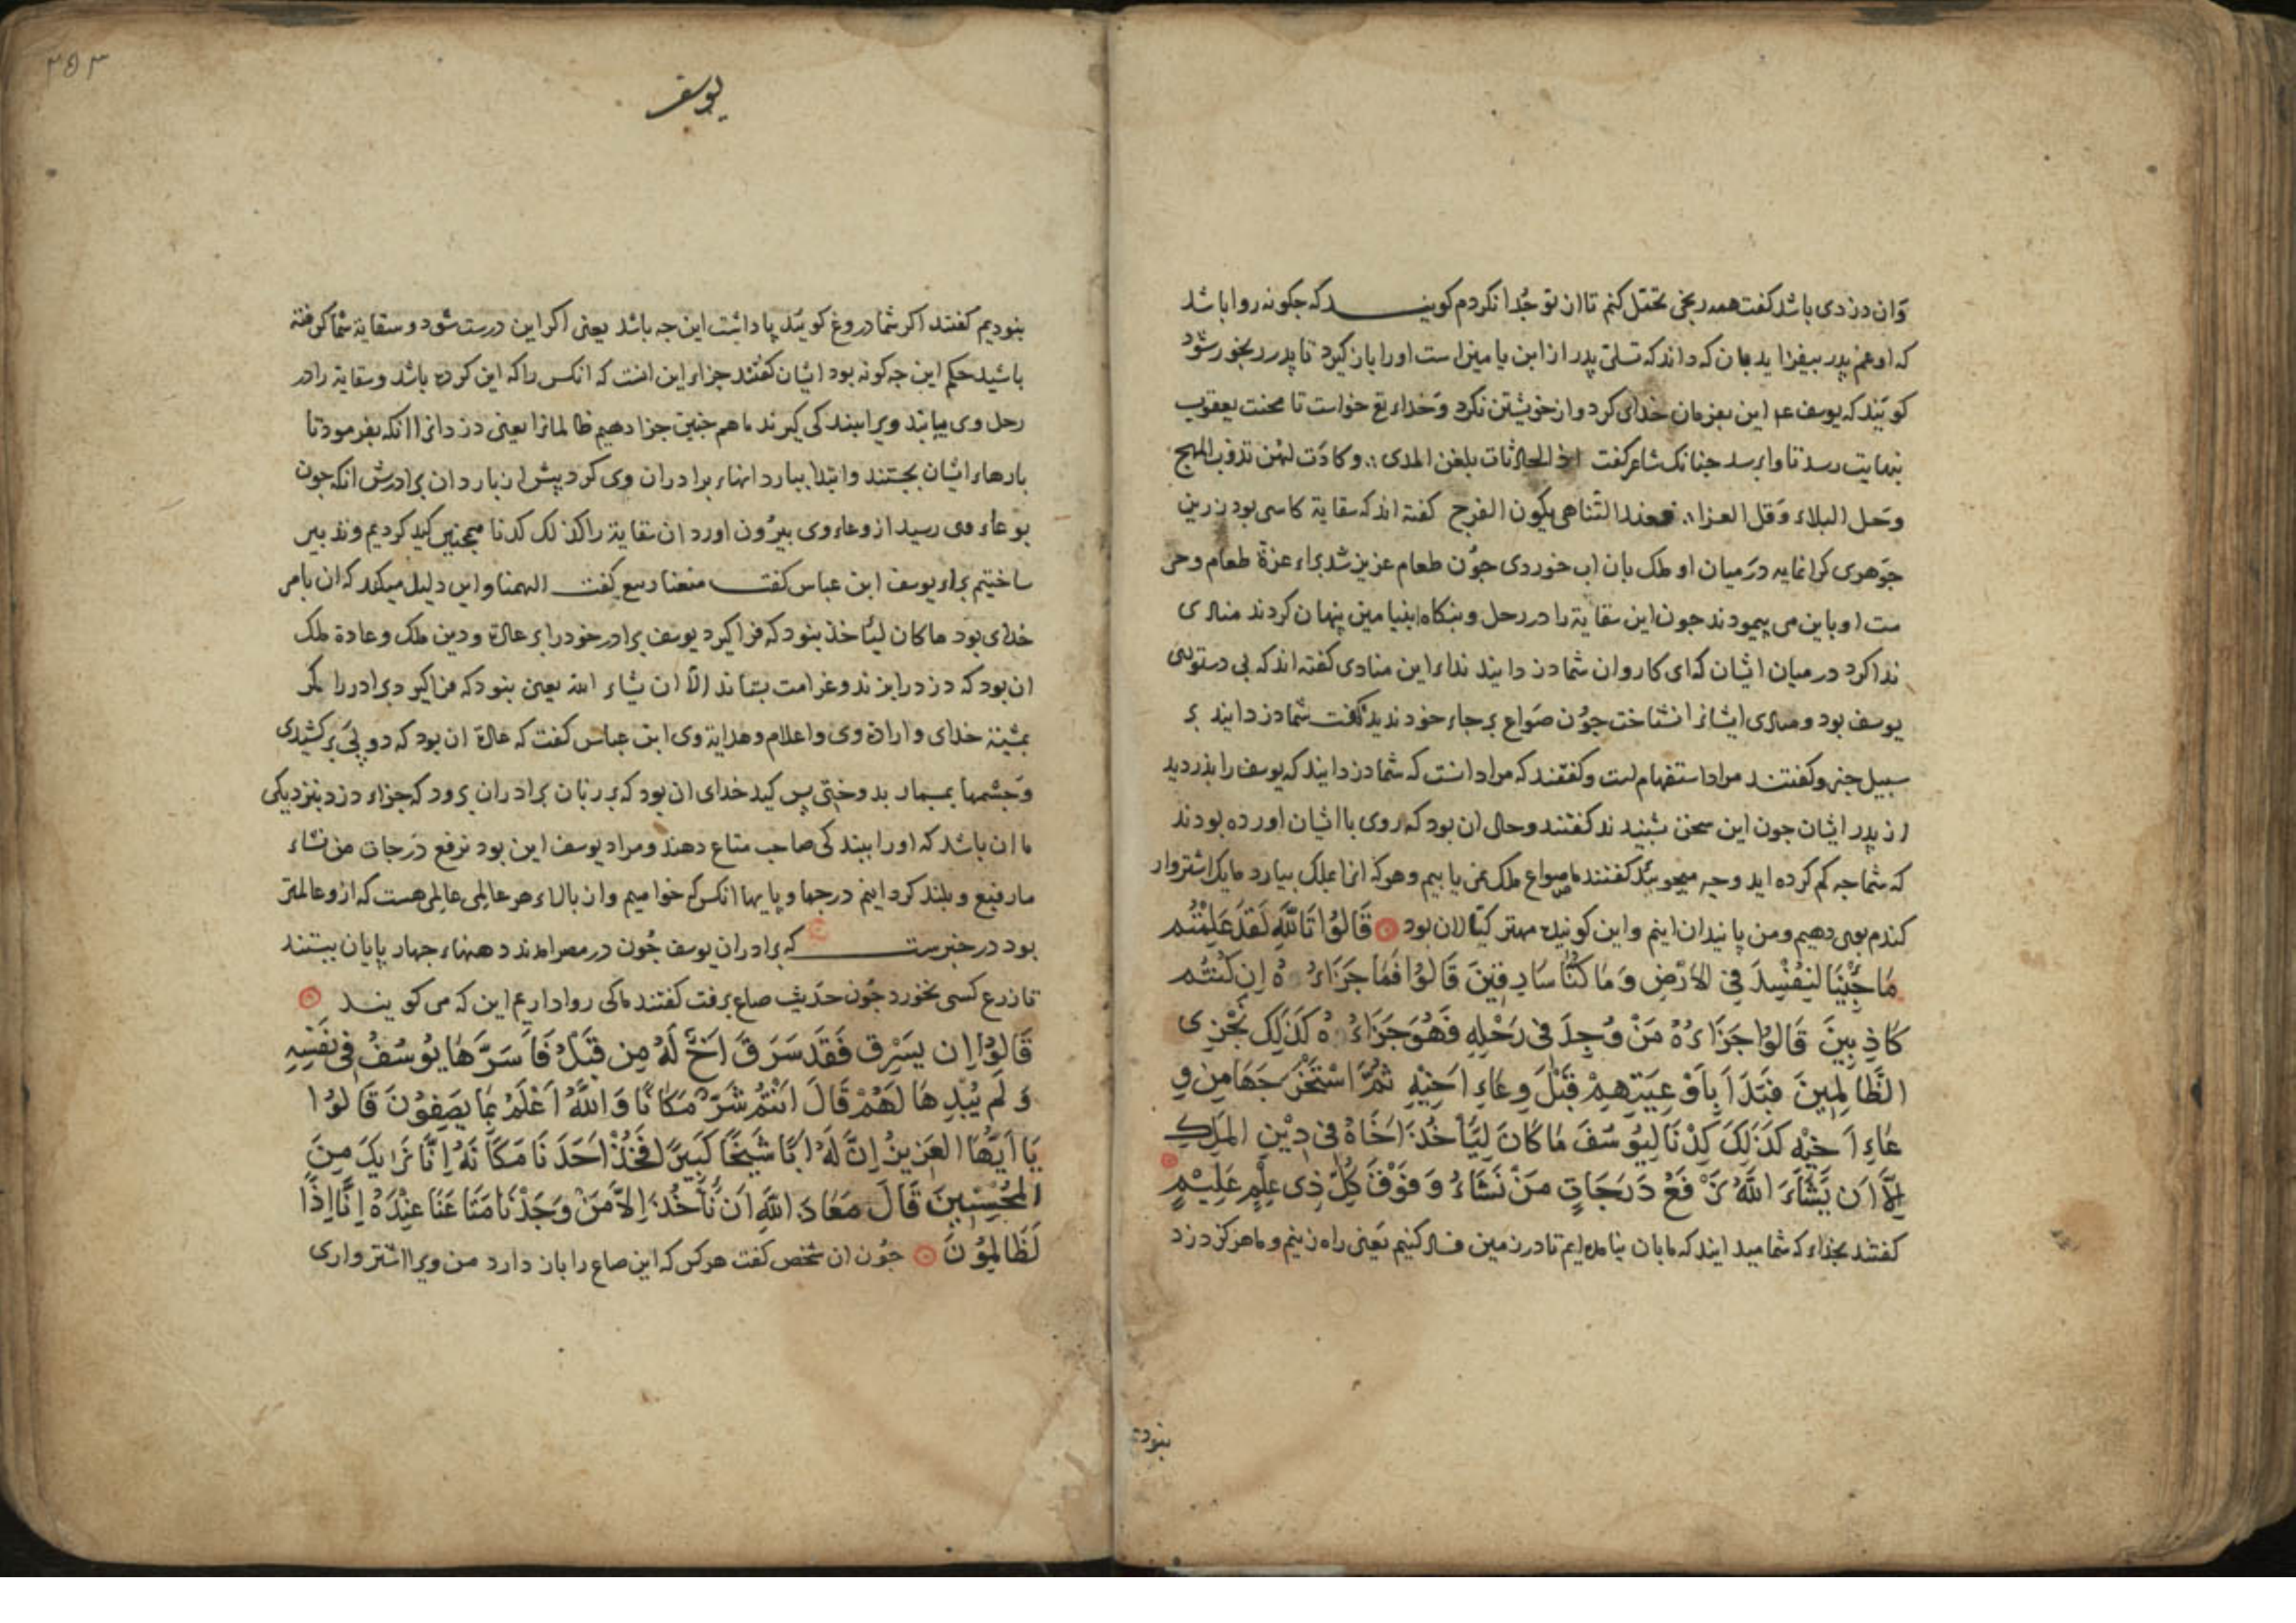 وان دزدی باشد کفت همه رنجی تحمّل کنم تا از تو جُدا نکردم کویند که جکونه روا باشد
که او غم پدر بیفزاید بدان که داند که تسلّی پدر از ابن یامین است او را باز کیرد تا پدر رنجور شود
کویند که یوسف عم این بفرمان خدای کرد و از خویشتن نکرد وخداء تع خواست تا محنت یعقوب
بنهایت رسد تا واپرسد جنانک شاعر کفت اذ الحادثات بلغن المدی ؞ وکادَت لهن تذوب المهج
وحل البلاء وقل العزا ؞ فعند التناهی یکون الفرج کفته اند که سقایة کاسی بود زرین
جوهری کرانمایه در میان او ملک بان اب خوردی جون طعام عزیز شد براء عزة طعام وحر
مت او باین می پیمودند جون این سقایة را در رحل وبنکاه ابنیامین پنهان کردند منادی
ندا کرد در میان ایشان که ای کاروان شما دزدانید نداء این منادی کفته اند که بی دستوری
یوسف بود ومنادی ایشانرا نشناخت جون صواع بر جاء خود ندید کفت شما دزدانید بر
سبیل جزم وکفتند مراد استفهام است وکفتند که مراد انست که شما دزدانید که یوسف را بدزدید
از پدر ایشان جون این سخن شنیدند کفتند وحال ان بود که روی با ایشان اورده بودند
که شما جه کم کرده اید وجه میجویید کفتند ما صواع ملک نمی یابیم وهر که انرا بملک بیارد ما یک اشتروار
کندم بوی دهیم ومن پایندان اینم واین کوینده مهتر کیّالان بود قَالُوا تَاللَّهِ لَقَدْ عَلِمْتُم
مَا جِئْنَا لِنُفْسِدَ فِی الْاَرْضِ وَمَا کُنَّا سَارِقِینَ قَالُوا فَمَا جَزَاءُهُ اِن کُنتُم
کَاذِبِینَ قَالُوا جَزَاءُهُ مَنْ وُجِدَ فِی رَحْلِهِ فَهُوَ جَزَاءُهُ کَذَلِکَ نَجْزِی
الظَّالِمِینَ فَبَدَاَ بِاَوْعِیَتِهِمْ قَبْلَ وِعَاءِ اَخِیْهِ ثُمَّ اسْتَخْرَجَهَا مِن وِ
عَاءِ اَخِیْهِ کَذَلِکَ کِدْنَا لِیُوسُفَ مَا کَانَ لِیَاْخُذَ اَخَاهُ فِی دِیْنِ المَلِکِ
اِلَّا اَن یَشَاءَ اللَّهُ نَرْفَعُ دَرَجَاتٍ مَنْ نَشَاءُ وَفَوْقَ کُلِّ ذِی عِلْمٍ عَلِیْمٍ
کفتند بخداء که شما میدانید که ما بان نیامده ایم تا در زمین فساد کنیم یعنی راه زنیم وما هرکز دزد
نبودیم
یوسف
۳۵۳
نبودیم کفتند اکر شما دروغ کویید پاداشت این جه باشد یعنی اکر این درست شود وسقایة شما کرفته
باشید حکم این جه کونه بود ایشان کفتند جزاء این انست که انکس را که این کرده باشد وسقایة را در
رحل وی بیابند ویرا ببند کی کیرند ما هم جنین جزا دهیم ظالمانرا یعنی دزدانرا انکه بفرمود تا
بارهاء ایشان بجستند وابتدا ببارد انهاء برادران وی کرد پیش از باردان برادرش انکه جون
بوعاء وی رسید از وعاء وی بیرون اورد ان سقایة را کذلک کدنا همجنین کید کردیم وتدبیر
ساختیم براء یوسف ابن عباس کفت صنعنا ربیع کفت الهمنا واین دلیل میکند که ان بامر
خدای بود ما کان لیاخذ نبود که فرا کیرد یوسف برادر خود را بر عادة ودین ملک وعادة ملک
ان بود که دزد را بزند وغرامت بستاند الّا ان یشاء الله یعنی نبود که فرا کیرد برادر را مکر
بمشیّة خدای وارادة وی واعلام وهدایة وی ابن عباس کفت که عادة ان بود که دو پی برکشیدی
وجشمها بمسمار بدوختی پس کید خدای ان بود که بر زبان برادران برود که جزاء دزد بنزدیکی
ما ان باشد که او را ببند کی صاحب متاع دهند ومراد یوسف این بود نرفع درجات من نشاء
ما رفیع وبلند کردانیم درجها وپایها انکس که خواهیم وان بالاء هر عالمی عالمی هست که ازو عالمتر
بود در خبرست که برادران یوسف جُون در مصر امدند دهنهاء جهار پایان ببستند
تا زرع کسی نخورد جُون حدیث صاع برفت کفتند ما کی روا داریم این که می کویند
قَالُوا اِن یَسْرِق فَقَدْ سَرَقَ اَخٌ لَهُ مِن قَبْلُ فَاَسَرَّهَا یُوسُفُ فِی نَفْسِهِ
وَلَم یُبْدِهَا لَهُمْ قَالَ اَنْتُمْ شَرٌّ مَکَانًا وَاللَّهُ اَعْلَمُ بِمَا یَصِفُوْنَ قَالُوا
یَا اَیُّهَا العَزِیزُ اِنَّ لَهُ اَبًا شَیْخًا کَبِیرًا فَخُذْ اَحَدَنَا مَکَانَهُ اِنَّا نَرَایکَ مِنَ
المُحْسِنِینَ قَالَ مَعَاذَ اللَّهِ اَن نَاْخُذَ اِلَّا مَنْ وَجَدْنَا مَتَاعَنَا عِنْدَهُ اِنَّا اِذًا
لَظَالِمُوْنَ جُون ان شخص کفت هر کس که این صاع را باز دارد من ویرا اشترواری